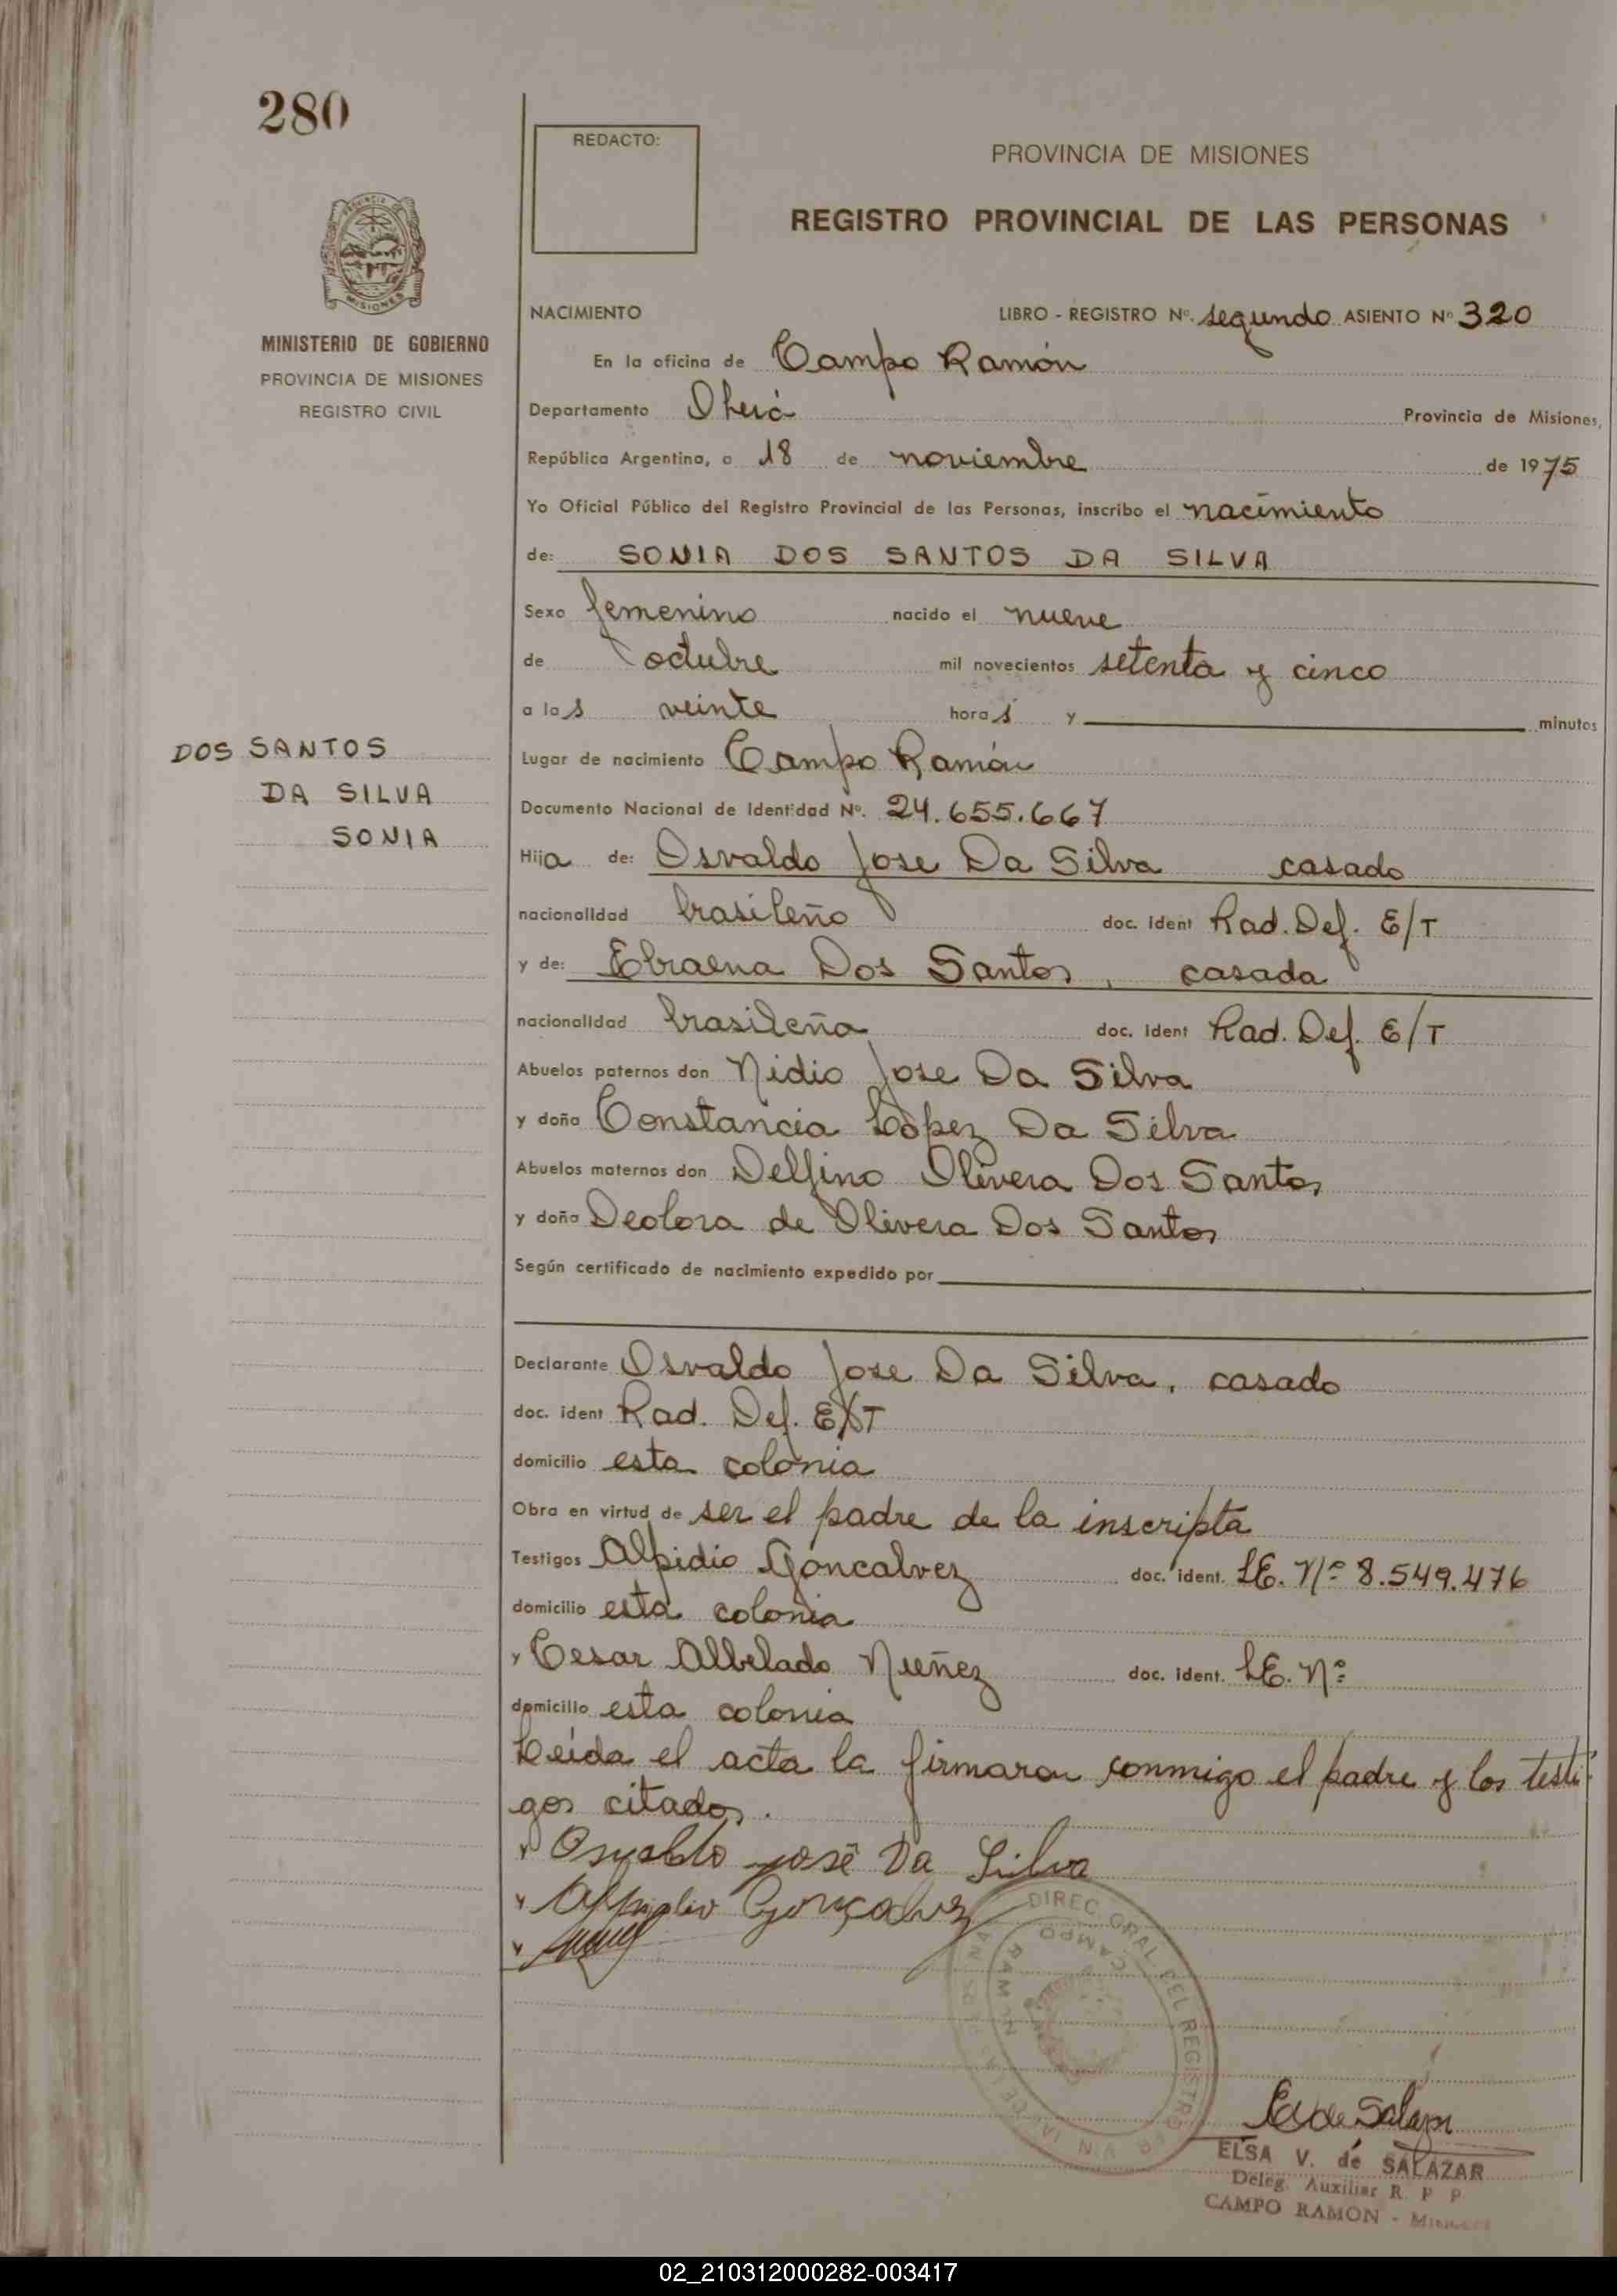 280
REDACTO:
PROVINCIA DE MISIONES
REGISTRO PROVINCIAL DE LAS PERSONAS
MISIONES
MINISTERIO DE GOBIERNO
PROVINCIA DE MISIONES
REGISTRO CIVIL
NACIMIENTO LIBRO - REGISTRO Nº. segundo ASIENTO Nº 320
En la oficina de Campo Ramón
Departamento Oberá Provincia de Misiones,
República Argentina, a 18 de noviembre de 1975
Yo Oficial Público del Registro Provincial de las Personas, inscribo el nacimiento
de: SONIA DOS SANTOS DA SILVA
Sexo femenino nacido el nueve
de octubre mil novecientos setenta y cinco
a las veinte horas y minutos
DOS SANTOS
DA SILVA
SONIA
Lugar de nacimiento Campo Ramón
Documento Nacional de Identidad Nº. 24.655.667
Hija de: Osvaldo Jose Da Silva casado
nacionalidad brasileño doc. ident Rad. Def. E/T
y de: Ebraena Dos Santos, casada
nacionalidad brasileña doc. ident Rad. Def. E/T
Abuelos paternos don Nidio Jose Da Silva
y doña Constancia López Da Silva
Abuelos maternos don Delfino Olivera Dos Santos
y doña Deolora de Olivera Dos Santos
Según certificado de nacimiento expedido por
Declarante Osvaldo Jose Da Silva, casado
doc. ident Rad. Def. E/T
domicilio esta colonia
Obra en virtud de ser el padre de la inscripta
Testigos Alpidio Goncalvez doc. ident. LE. Nº 8.549.476
domicilio esta colonia
y Cesar Albelado Nuñez doc. ident. LE. Nº
domicilio esta colonia
Leída el acta la firmaron conmigo el padre y los testi-
gos citados.
Osvaldo José Da Silva
Alpidio Gonçalvez
DIREC. GRAL. DEL REGISTRO
CAMPO RAMON
ELSA V. de SALAZAR
Deleg. Auxiliar R. P. P.
CAMPO RAMON - Misiones
02_210312000282-003417